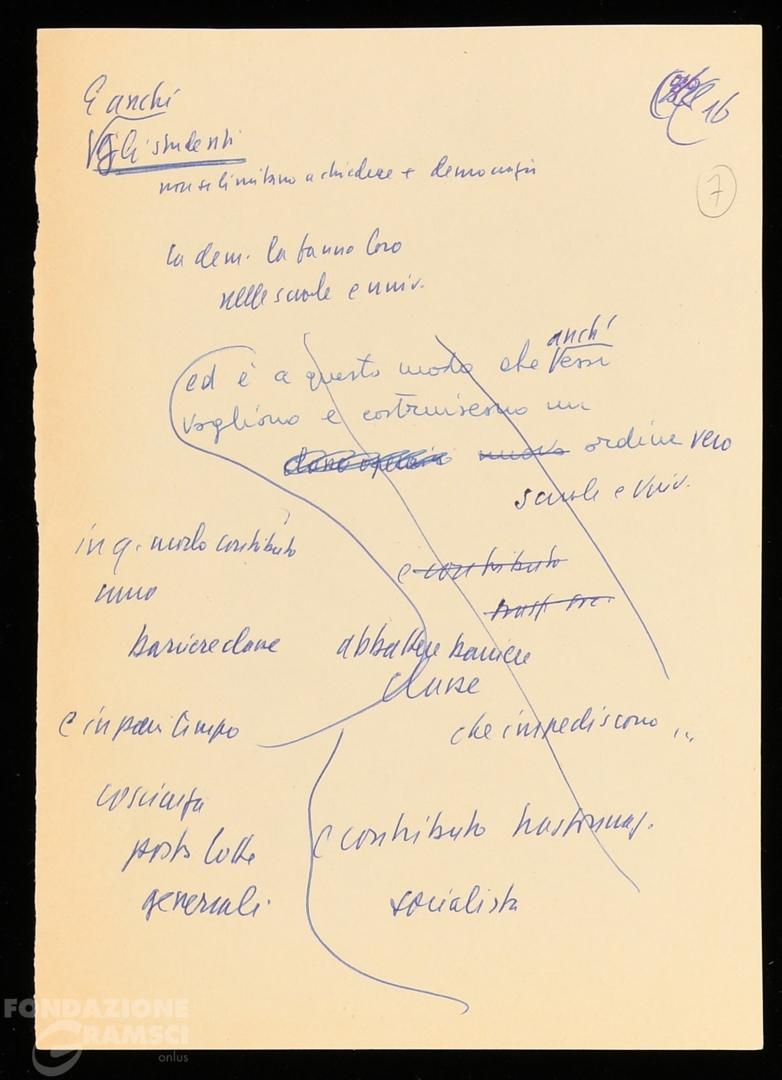 E anchi
gli studenti
non si limitano a chiedere + democrazia
la dem. la fanno loro
nelle scuole e univ.
anchi
ed è a questo modo che essi
vogliono e costruiscono un
nuovo ordine vero
scuole e univ.
in q. modo contributo
e contributo
barriere classe
abbattere barriere
classe
e in pari tempo
che impediscono ...
coscienza
posto lotte
e contributo trasformaz.
generali.
socialista
16
7
FONDAZIONE
GRAMSCI
onlus